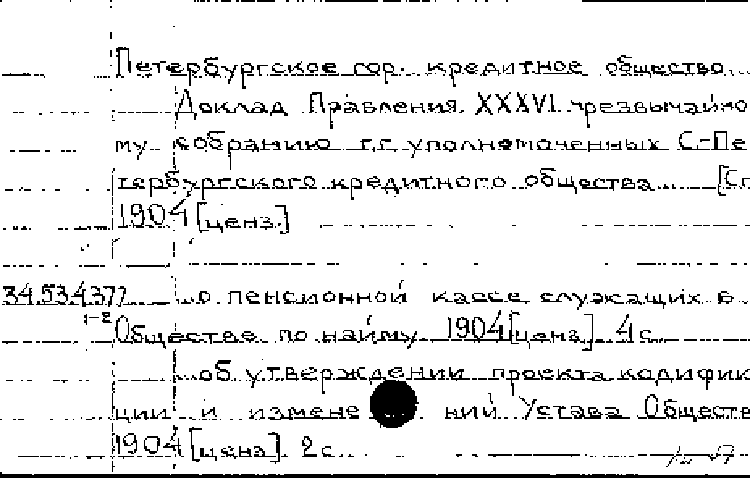 Петербургское гор. кредитное общество.
Доклад Правления XXXVI чрезвычайно
му собранию г.г. уполномоченных С.-Пе
тербургского кредитного общества... [Сп
1904 [ценз.]
34.53.4.377 ...о пенсионной кассе служащих в
1-2 Обществе по найму 1904 [ценз]. 4 с.
...об утверждении проекта кодифик
ции и измене ний Устава Обществ
1904 [ценз]. 2 с.